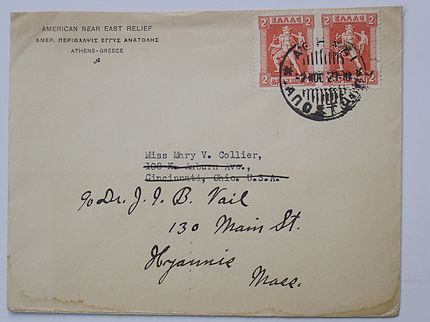 AMERICAN NEAR EAST RELIEF
ΑΜΕΡ. ΠΕΡΙΘΑΛΨΙΣ ΕΓΓΥΣ ΑΝΑΤΟΛΗΣ
ATHENS-GREECE
ΕΛΛΑΣ
2 2
2 2
ΑΠΟΣΤΟΛ
Miss Mary V. Collier,
108 E. Auburn Ave.,
Cincinnati, Ohio. U.S.A.
c/o Dr. J. I. B. Vail
130 Main St.
Hyannis
Mass.